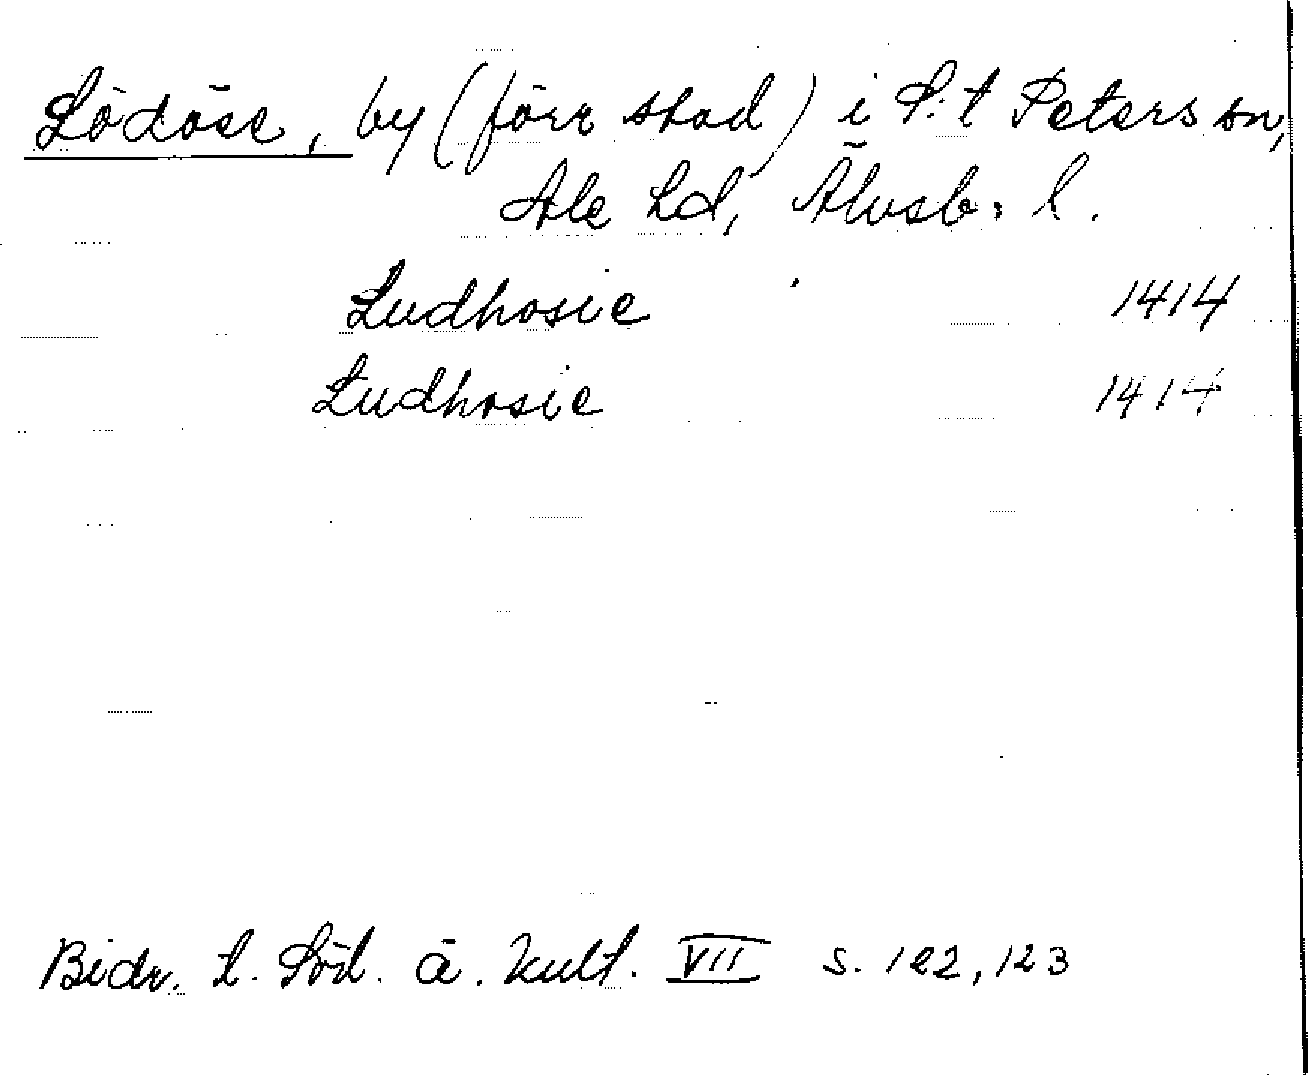 Lödöse, by (förr stad) i S:t Peters sn,
Ale hd, Älvsb. l.
Ludhosie 1414
Ludhosie 1414
Bidr. t. Söd. ä. kult. VII s. 122, 123